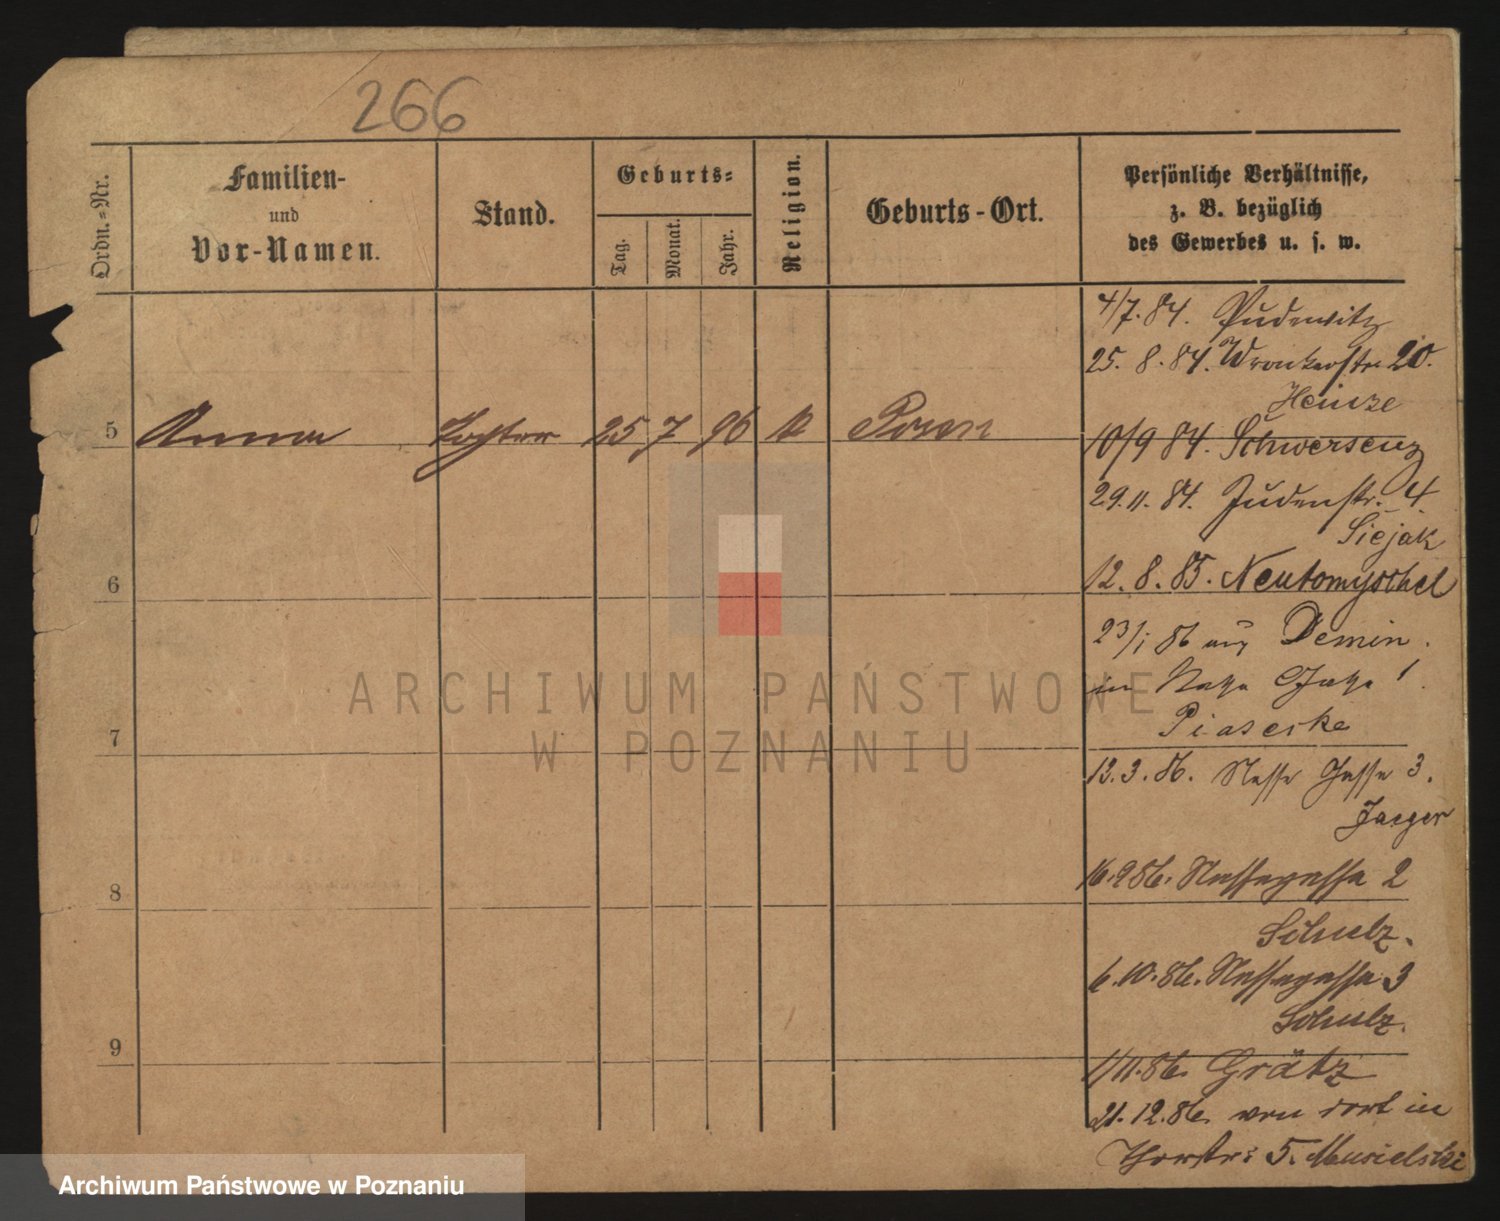 266
Ordn.-Nr.
Familien-
und
Vor-Namen.
Stand.
Geburts-
Tag.
Monat.
Jahr.
Religion.
Geburts-Ort.
Persönliche Verhältnisse,
z. B. bezüglich
des Gewerbes u. s. w.
4/7. 84. Pudewitz
25. 8. 84. Wronkerstr. 20.
Heinze
5 Anna Tochter 25 7 96 k Posen
10/9 84. Schwersenz
29. 11. 84. Judenstr. 4.
Siejak
6
12. 8. 85. Neutomyschel
23/1 86 aus Demin.
in
Piaseske
7
13. 3. 86. Nasse Gasse 3.
Jaeger
8
16. 9. 86. Nassegasse 2
Schulz.
6. 10. 86. Nassegasse 3
Schulz.
9
1/11. 86. Grätz
21. 12. 86. von dort in
Thorstr: 5. Musielski
ARCHIWUM PAŃSTWOWE
W POZNANIU
Archiwum Państwowe w Poznaniu